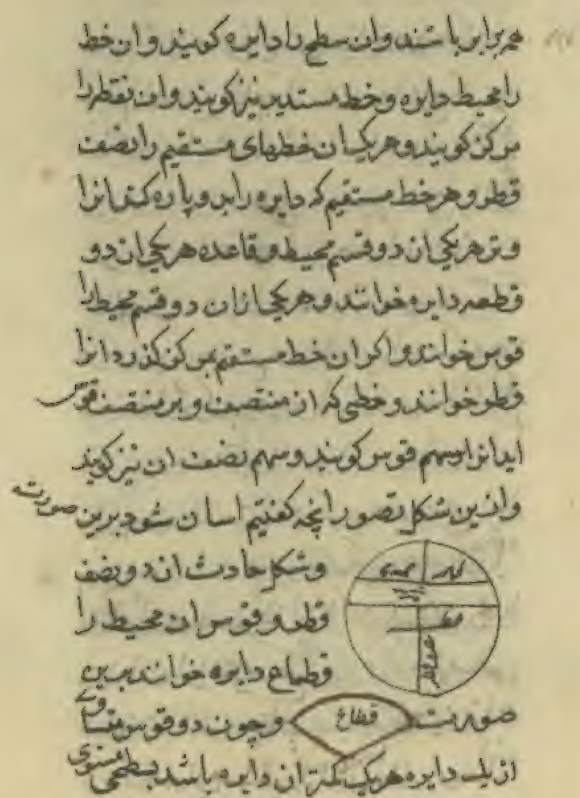 همه برابر باشند و ان سطح را دایره کویند و ان خط
را محیط دایره و خط مستدیر نیز کویند و ان نقطه را
مرکز کویند و هریک ان خطهای مستقیم را نصف
قطر و هر خط مستقیم که دایره را بدو پاره کند انرا
وتر هریکی ان دو قسم محیط و قاعده هریکی ان دو
قطعه دایره خوانند و هریکی ازان دو قسم محیط را
قوس خوانند و اکر ان خط مستقیم بمرکز کذرد انرا
قطر خوانند و خطی که از منتصف وتر بمنتصف قوس
اید انرا سهم قوس کویند و سهم نصف ان نیز کویند
و ازین شکل تصور انچه کفتیم اسان شود برین صورت
و شکل حادث از دو نصف
قطر و قوس از محیط را
قطاع دایره خوانند برین
صورت قطاع و چون دو قوس متساوی
از یک دایره هریک کمتر از نصف دایره باشد بسطحی مستوی